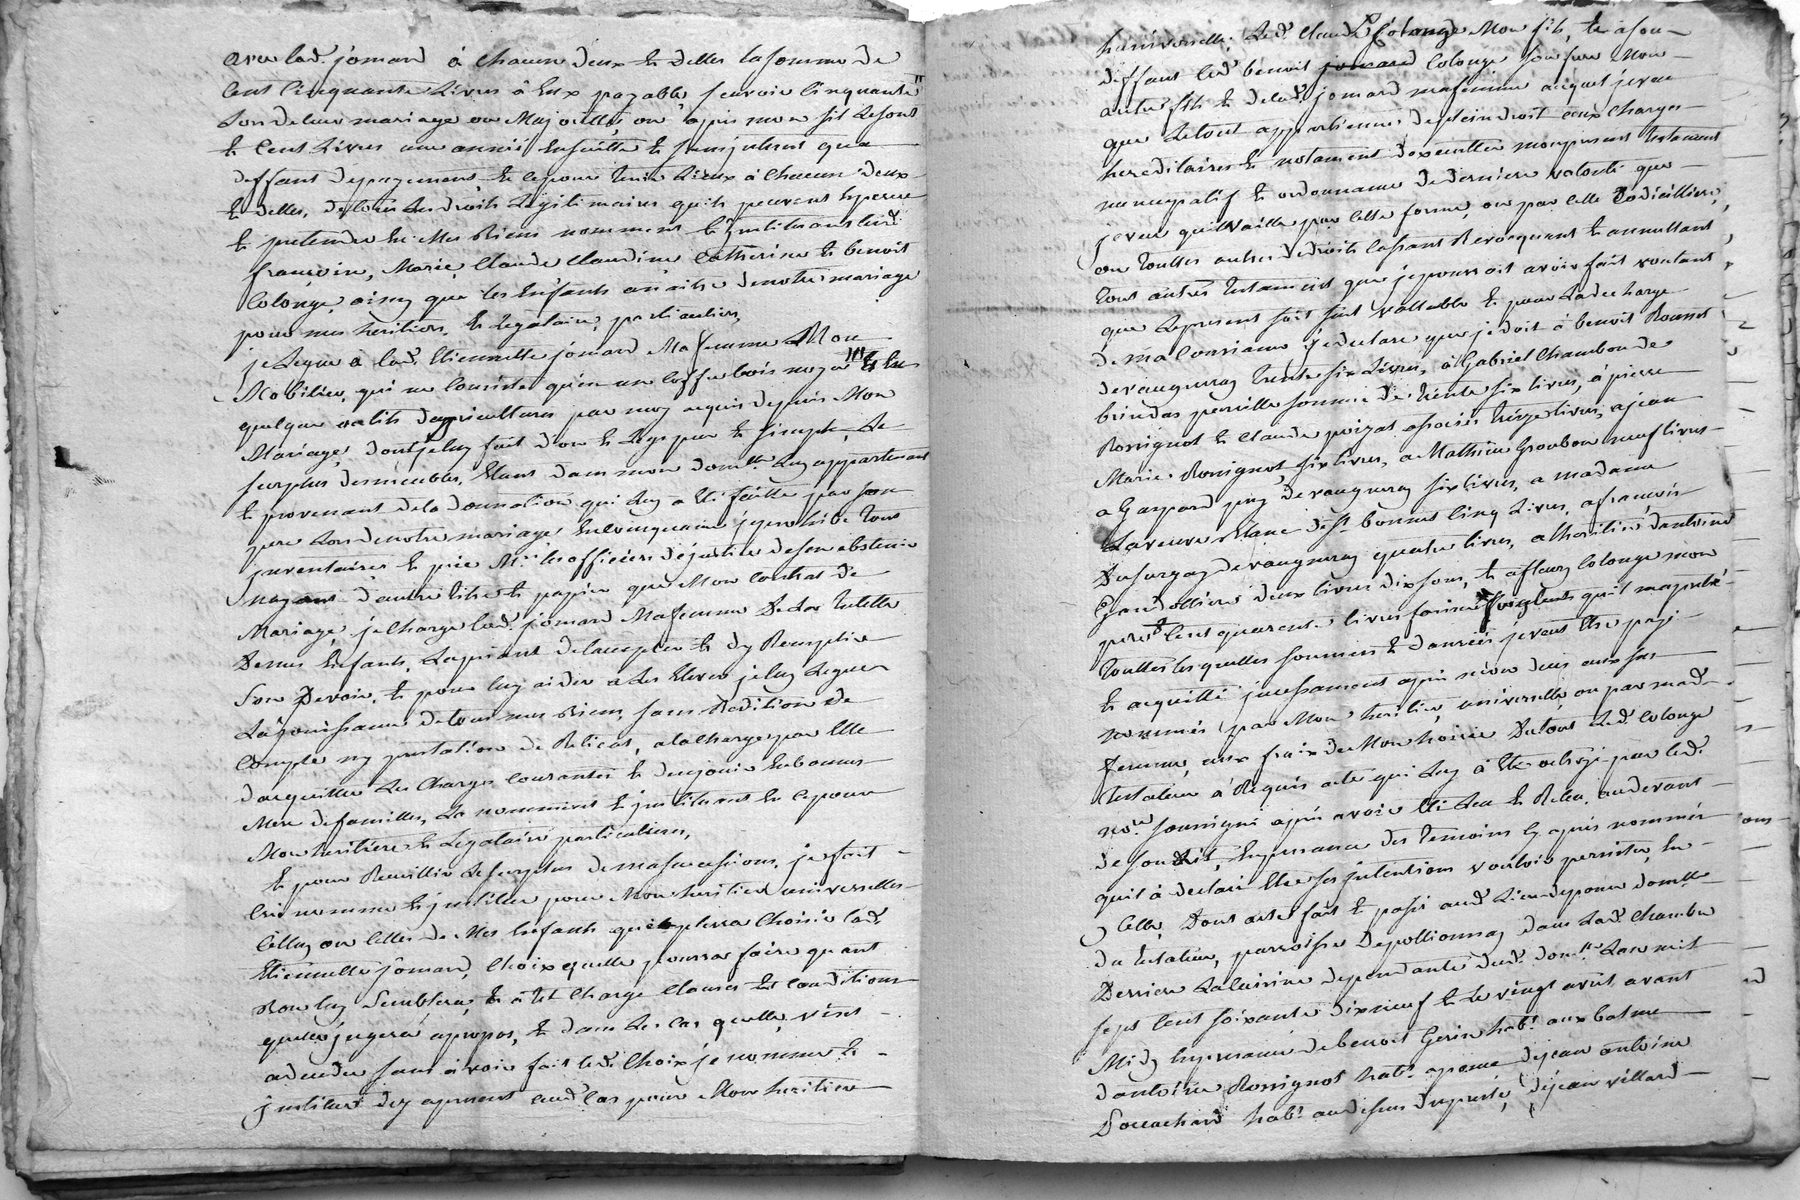 avec lad. jomard à chacun deux et delles la somme de
cent cinquante livres à eux payable, scavoir cinquante
lors de leur mariage ou majorité, ou apres mon
et cent livres une année ensuitte
deffaut de payement, et ce pour tenir lieux à chacun deux
et delles, de tous les droits légitimaires quils peuvent esperer
et pretendre en mes biens nommant et instituant lesd.
françoise, Marie, Claude Claudine Catherine et benoit
Colonge, ainsy que les enfants à naitre de notre mariage
pour mes heritiers, et legataires, particuliers,
je legue à lad. Etiennette jomard Ma femme Mon
Mobilier, qui ne consiste qu'en un coffre bois noyer et en
quelque outils dagricultures par moy acquis depuis Mon
Mariage, dont je luy fait don et legs pur et simple, le
surplus des meubles, etant dans mon domlle luy appartenant
et provenant de la donnation qui luy a eté faitte par son
pere lors de notre mariage, en consequence je prohibe tous
inventaires et prie Mrs les officiers de justice de sen abstenir
nayant d'autre titre et papier que Mon contrat de
Mariage, je charge lad. jomard Ma femme De la tutelle
De mes enfants, la priant de laccepter et dy Remplir
Son Devoir, et pour luy aider a les Elever je luy legue
La jouissance de tous mes Biens, sans Reddition de
Compte ny prestation de Relicat, a la charge par Elle
dacquitter les charges courantes et den jouir en bonne
Mere de familles, la nommant et instituant en ce pour
Mon heritiere et legataire particuliere,
Et pour Recueillir le surplus de ma succession, je fait
Crée nomme et institue pour Mon heritier universelles
Celluy ou Celles de Mes Enfants quil plerra Choisir lad.
Etiennette jomard, Choix quelle pourra faire quant
Bon luy Semblera, et à tel Charge Clauses et Conditions
quelle jugera apropos, et dans le cas quelle vint
a deceder sans avoir fait led. choix je nomme et
institue des apresent aud. cas pour Mon heritiere
huniverselle, Led. Claude Colonge Mon fils, et à son
deffaut led. benoit jomard Colonge son frere Mon
autre fils et de lad. jomard ma femme auquel je veux
que le tout appartienne de plein droit aux charges
hereditaires et notament dexecutter mon present testament
nuncupatif et ordonnance de derniere volonté que
je veux quil vaille par cette forme, ou par celle Codicillaire,
ou touttes autres de droits Cassant Revocquant et annullant
tout autres testaments que je pourrois avoir fait voulant
que le present soit seul vallable et pour la decharge
de ma Conscience je declare que je doit à benoit Rousset
de vaugneray trente six livres, à Gabriel Chambon de
brindas pareille somme de trente six livres, à pierre
Rossignol et Claude poizat associés treize livres, a jean
Marie Rossignol, six livres, a Mathieu Groubon neuf livres
a Gaspard puy de vaugneray six livres, a madame
La veuve Blanc de St bonnet cinq livres, a françois
Dufurgay de vaugneray quatre livres, a lhoritier dantoine
Grand ollière deux livres dix sous, et a fleury Colonge mon
pere cent quarente livres qu'il ma preté
touttes lesquelles sommes et danrées je veux etre payé
et acquitté incessament apres mon deces aux sus
nommés par Mon heritier, universelle, ou par mad.
femme, aux fraix de Mon hoirie Du tout led. Colonge
testateur à Requis acte qui luy à été octroyé par led.
nore soussigné apres avoir été lu et Relu, au devant
de son lit, en presence des temoins cy apres nommés
quil à declaré Etre ses intentions vouloir persister, en
Celle, Dont acte fait et passé aud. Lieu de pome domlle
du testateur, parroisse de pollionnay dans lad. chambre
Derriere la cuisine dependante dud. domlle Lan mil
sept cent soixante dix neuf et le vingt avril avant
Midy en presence de benoit Gerin habt. aux balme
dantoine Rossignol habt. apome de jean antoine
Bouchard habt. au dessus de jean villard